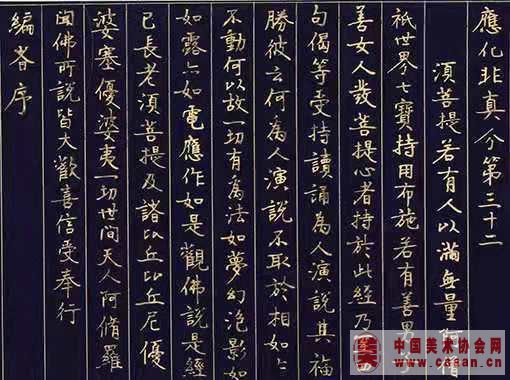 應化非真分第三十二
須菩提若有人以滿無量阿僧
祇世界七寶持用布施若有善男子
善女人發菩提心者持於此經乃至四
句偈等受持讀誦為人演說其福
勝彼云何為人演說不取於相如々
不動何以故一切有為法如夢幻泡影如
如露亦如電應作如是觀佛說是經
已長老須菩提及諸比丘比丘尼優
婆塞優婆夷一切世间天人阿脩羅
聞佛所說皆大歡喜信受奉行
編者序
中国美术协会网
www.caaan.cn